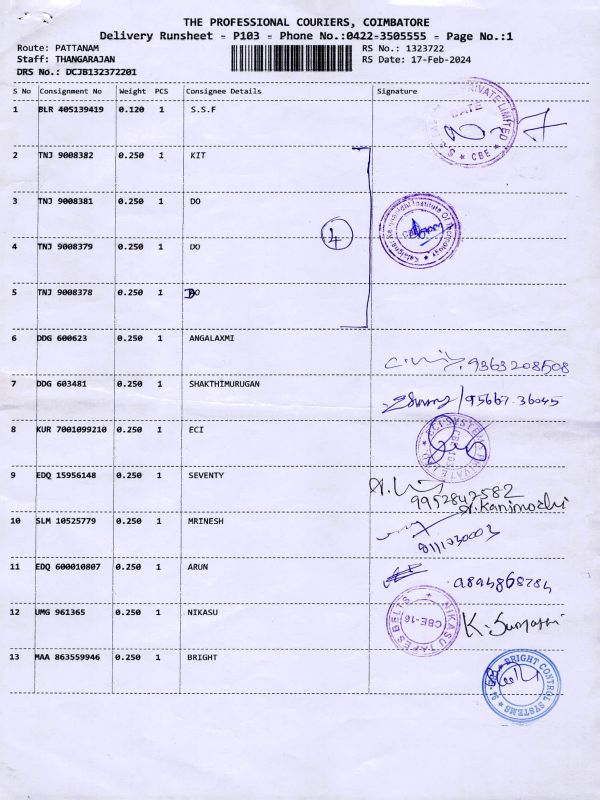 THE PROFESSIONAL COURIERS, COIMBATORE
Delivery Runsheet - P103 - Phone No.:0422-3505555 - Page No.:1
Route: PATTANAM RS No.: 1323722
Staff: THANGARAJAN RS Date: 17-Feb-2024
DRS No.: DCJB132372201
S No Consignment No Weight PCS Consignee Details Signature
1 BLR 405139419 0.120 1 S.S.F
PRIVATE LIMITED
DATE
S.S
CBE
2 TNJ 9008382 0.250 1 KIT
3 TNJ 9008381 0.250 1 DO
4
Kalaignar Karunanidhi Institute Of Technology
4 TNJ 9008379 0.250 1 DO
5 TNJ 9008378 0.250 1 DO
6 DDG 600623 0.250 1 ANGALAXMI
9363208508
7 DDG 603481 0.250 1 SHAKTHIMURUGAN
95667 36045
8 KUR 7001099210 0.250 1 ECI
9 EDQ 15956148 0.250 1 SEVENTY
9952842582
A.Kanimozhi
10 SLM 10525779 0.250 1 MRINESH
11 EDQ 600010807 0.250 1 ARUN
12 UMG 961365 0.250 1 NIKASU
NIKASU TAPES BELTS
CBE-16
K. Sumathi
13 MAA 863559946 0.250 1 BRIGHT
BRIGHT CONTROL SYSTEMS